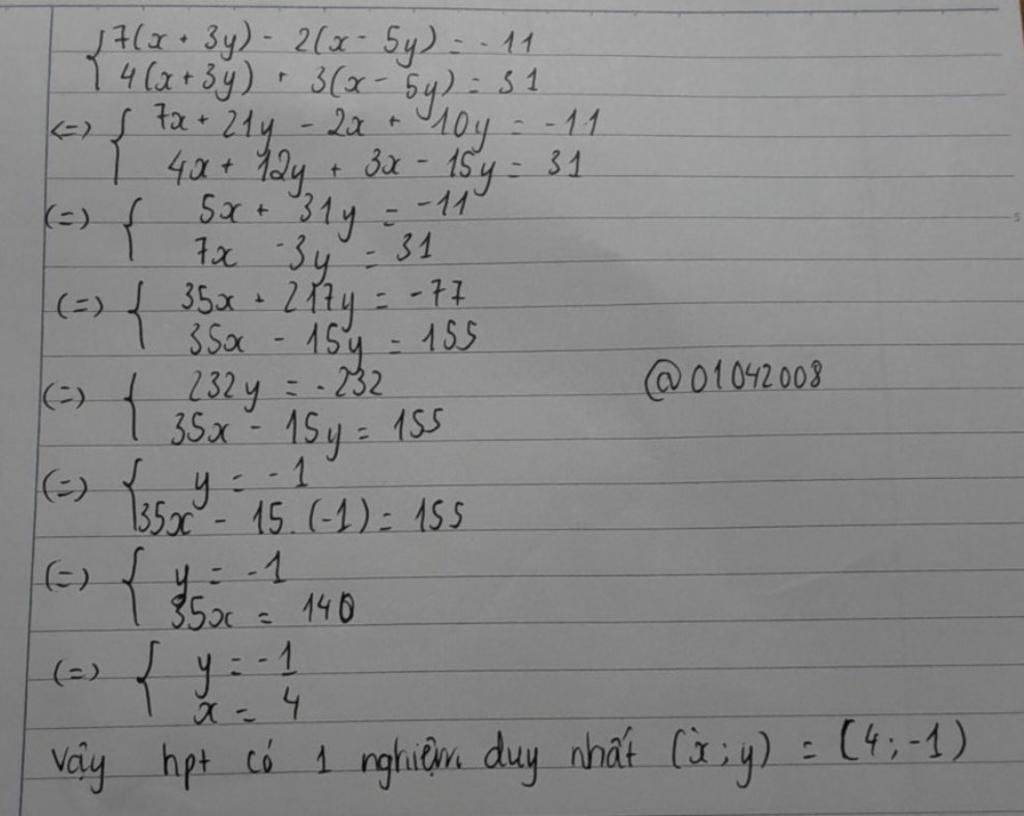 { 7(x + 3y) - 2(x - 5y) = -11
4(x + 3y) + 3(x - 5y) = 31
<=> { 7x + 21y - 2x + 10y = -11
4x + 12y + 3x - 15y = 31
(=) { 5x + 31y = -11
7x - 3y = 31
(=) { 35x + 217y = -77
35x - 15y = 155
(=) { 232y = -232
@01042008
35x - 15y = 155
(=) { y = -1
35x - 15.(-1) = 155
(=) { y = -1
35x = 140
(=) { y = -1
x = 4
Vậy hpt có 1 nghiệm duy nhất (x; y) = (4; -1)